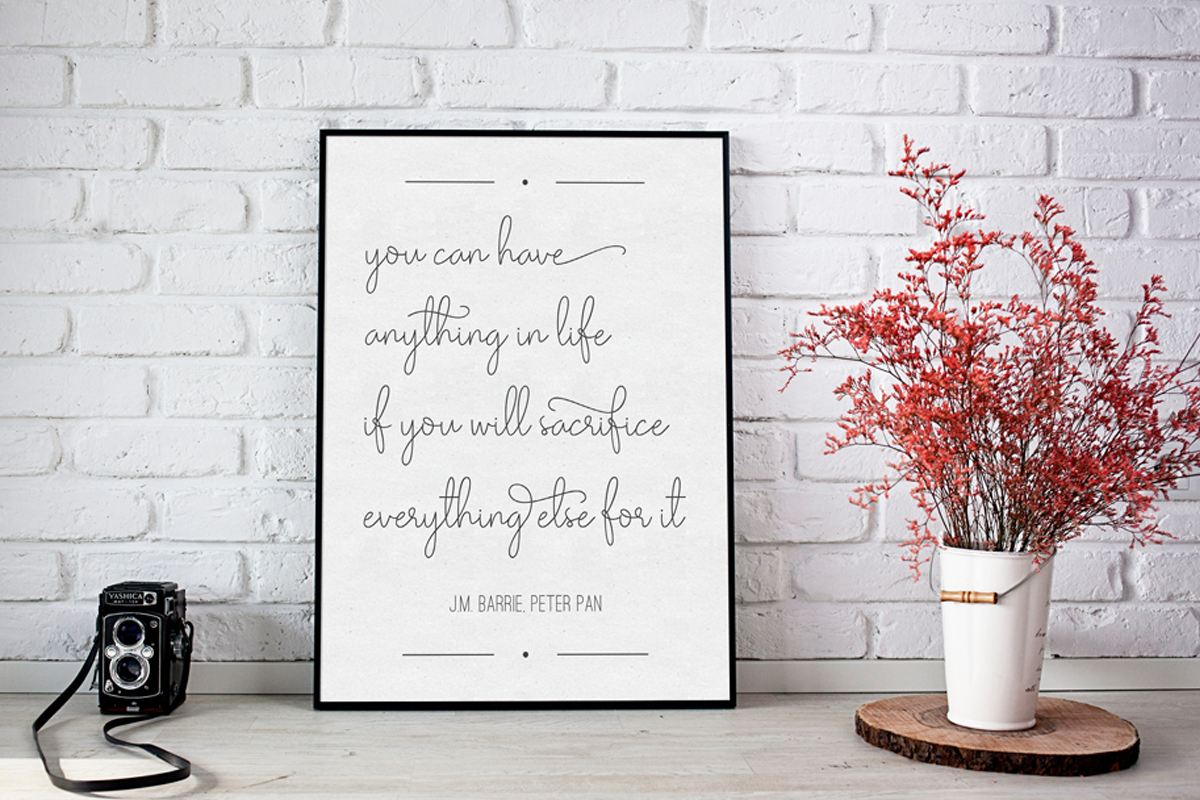 YASHICA
you can have
anything in life
if you will sacrifice
everything else for it
J.M. BARRIE, PETER PAN